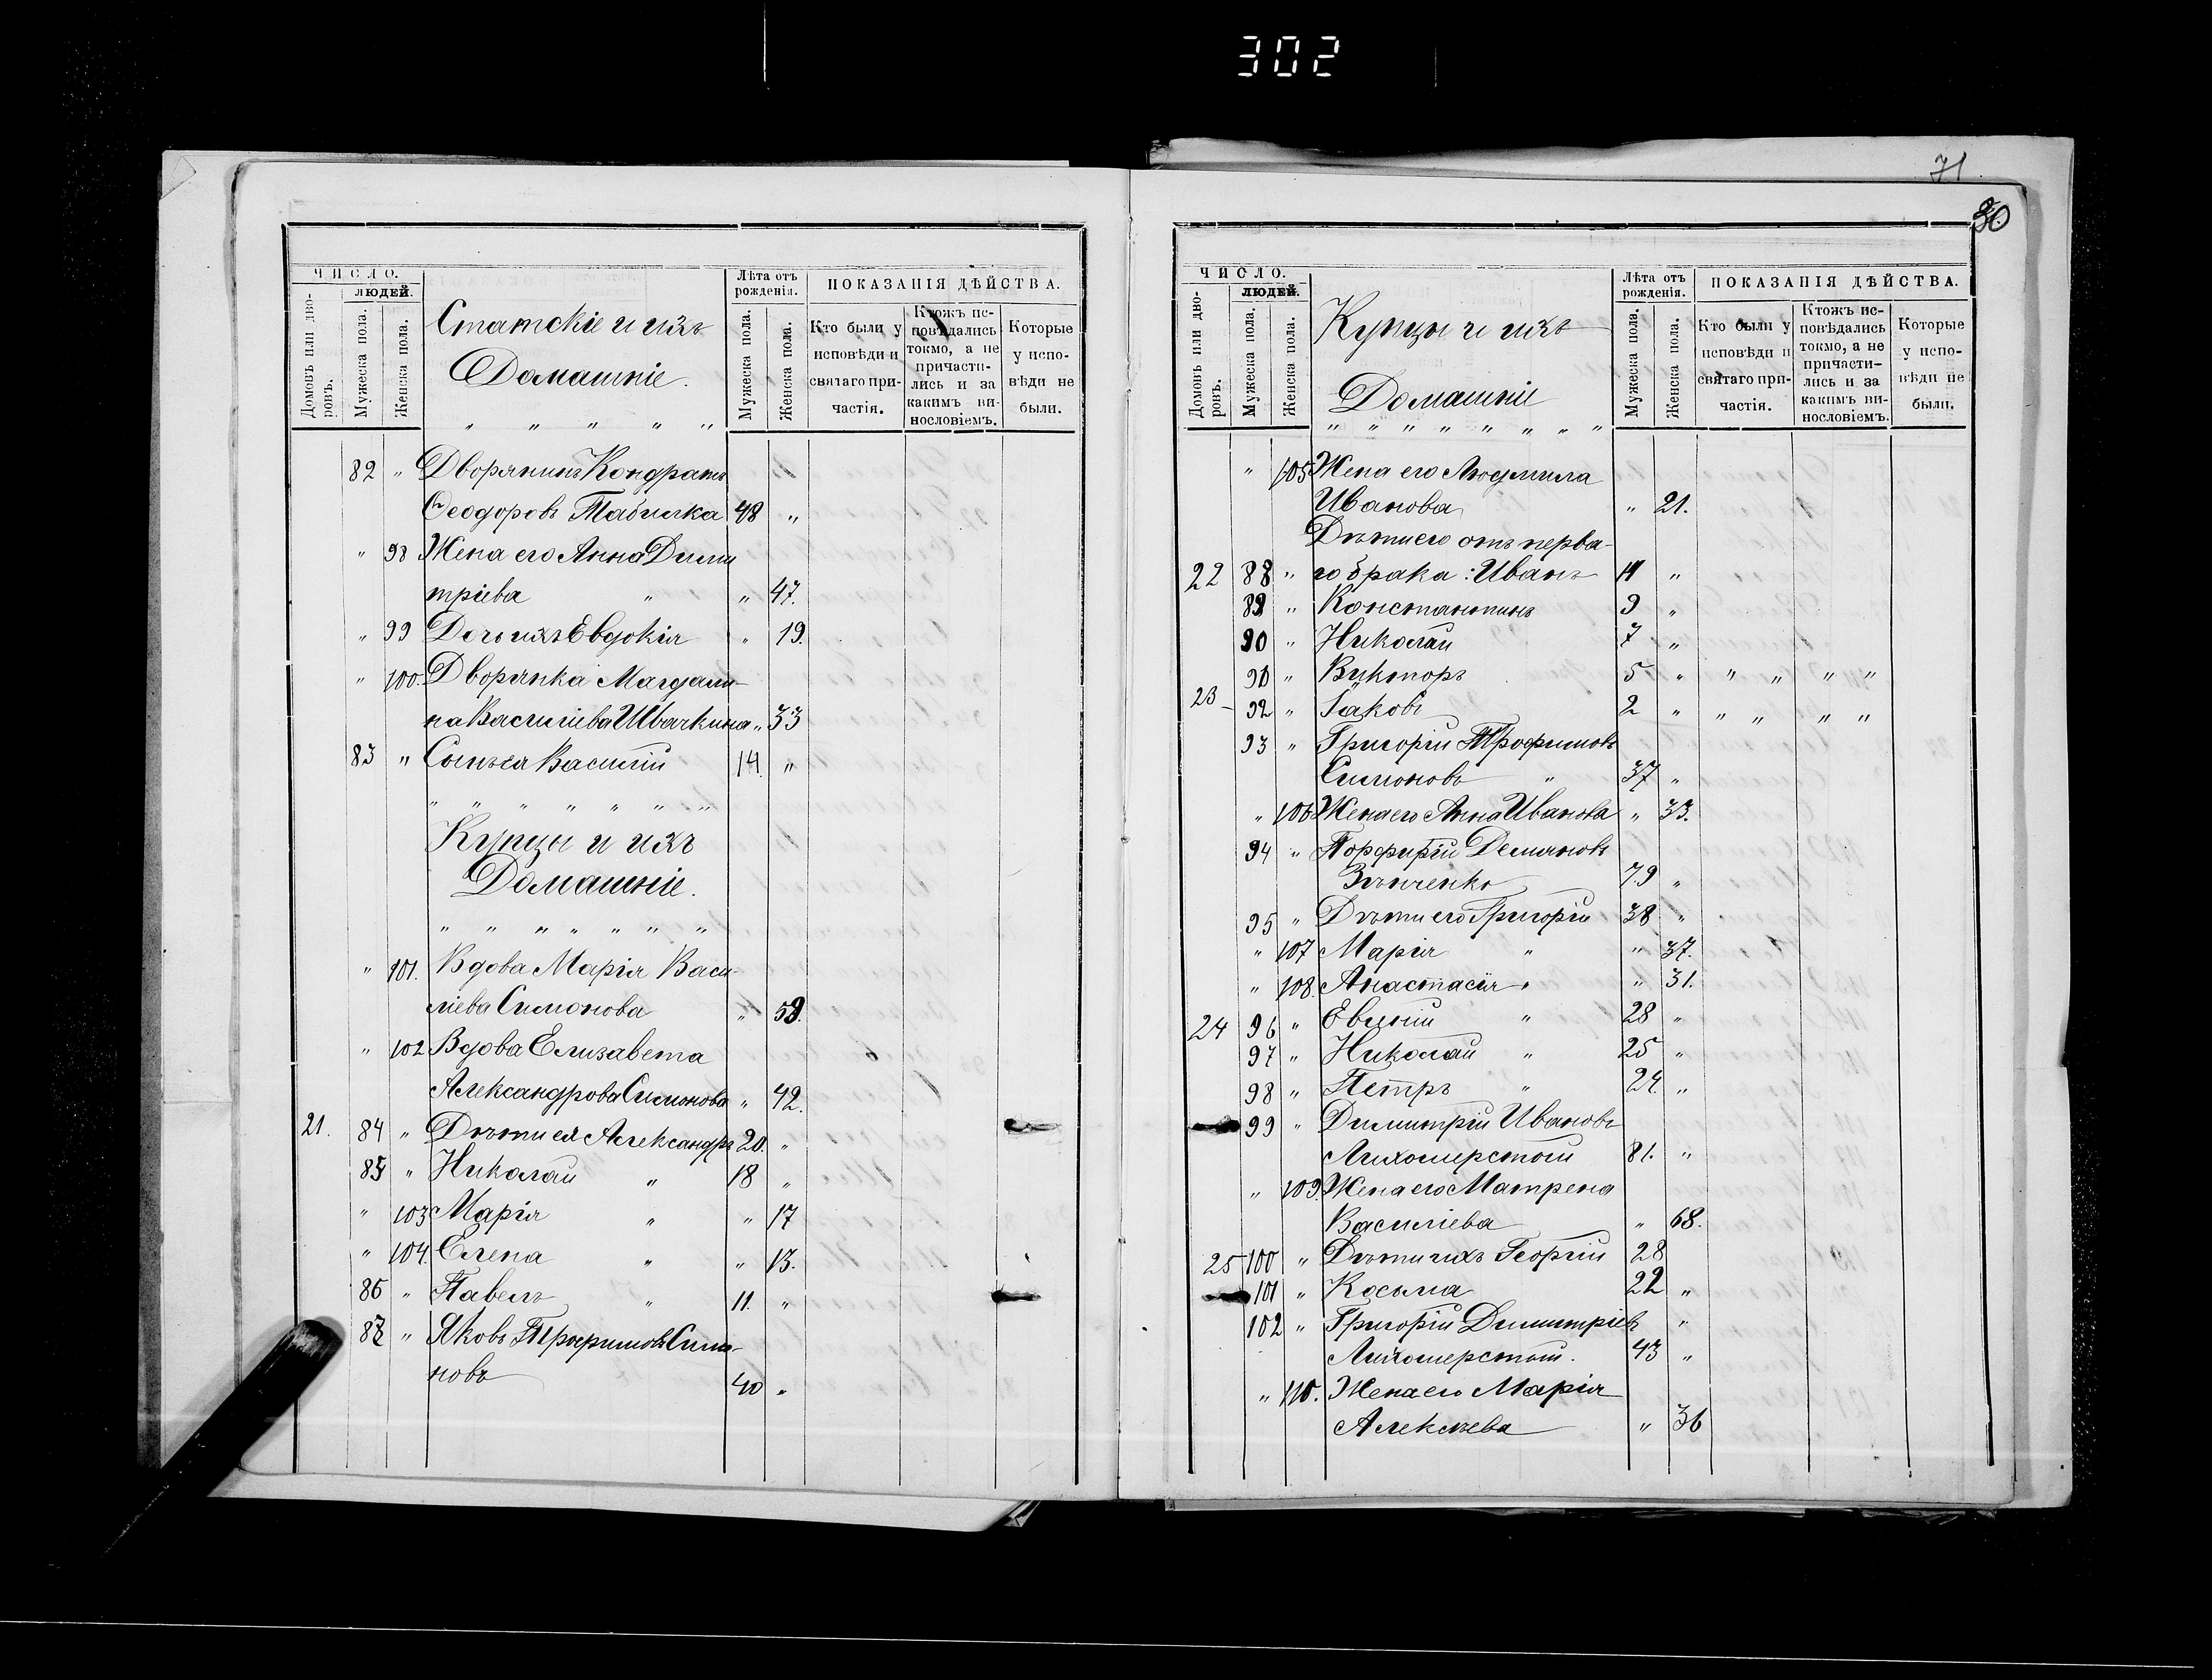 302
71
30
ЧИСЛО.
ЛЮДЕЙ.
Домовъ или дво-
ровъ.
Мужеска пола.
Женска пола.
Статскіе и ихъ
Домашніе.
Лѣта отъ
рожденія.
Мужеска пола.
Женска пола.
ПОКАЗАНІЯ ДѢЙСТВА.
Кто были у
исповѣди и
святаго при-
частія.
Ктожъ ис-
повѣдались
токмо, а не
причасти-
лись и за
какимъ ви-
нословіемъ.
Которые
у испо-
вѣди не
были.
" " " " "
82 " Дворянинъ Кондратъ
Ѳеодоровъ Табилка 48 "
" 98 Жена его Анна Дими
тріева " " 47.
" 99 Дочь ихъ Евдокія " 19.
" 100. Дворянка Магдали-
на Василіева Швачкина " 33
83 " Сынъ ея Василій 14. "
" " " " " " "
Купцы и ихъ
Домашніе.
" " " " " " "
" 101. Вдова Марія Васи-
ліева Симонова " 59.
" 102 Вдова Елизавета
Александрова Симонова " 42.
21. 84 " Дѣти ея Александръ 20. "
85 " Николай " 18 "
" 103 Марія " " 17
" 104. Елена " " 13.
86 " Павелъ " 11. "
87 " Яковъ Трофимовъ Симо-
новъ 40 "
ЧИСЛО.
ЛЮДЕЙ.
Домовъ или дво-
ровъ.
Мужеска пола.
Женска пола.
Купцы и ихъ
Домашніе
Лѣта отъ
рожденія.
Мужеска пола.
Женска пола.
ПОКАЗАНІЯ ДѢЙСТВА.
Кто были у
исповѣди и
святаго при-
частія.
Ктожъ ис-
повѣдались
токмо, а не
причасти-
лись и за
какимъ ви-
нословіемъ.
Которые
у испо-
вѣди не
были.
" " " " " " " "
" 105 Жена его Людмила
Иванова " 21.
Дѣти его отъ перва-
22 88 " го брака: Иванъ 11 "
89 " Константинъ 9 "
90 " Николай 7 "
91 " Викторъ 5 " " " " "
23 92 " Іаковъ 2 " " " " "
93 " Григорій Трофимовъ
Симоновъ " 37 "
" 106 Жена его Анна Иванова " 33.
94 " Порфирій Демяновъ
Зѣнченко 79 "
95 " Дѣти его Григорій 38 "
" 107 Марія " " 37.
" 108. Анастасія " " 31.
24 96 " Евгеній " 28 "
97 " Николай " 25 "
98 " Петръ " 24. "
99 " Димитрій Ивановъ
Лихошерстый 81. "
" 109. Жена его Матрена
Василіева " 68.
25 100 " Дѣти ихъ Георгій 28
101 " Косьма 22 "
102 " Григорій Димитріев "
Лихошерстый. 43 "
" 110. Жена его Марія
Алексѣева " 36